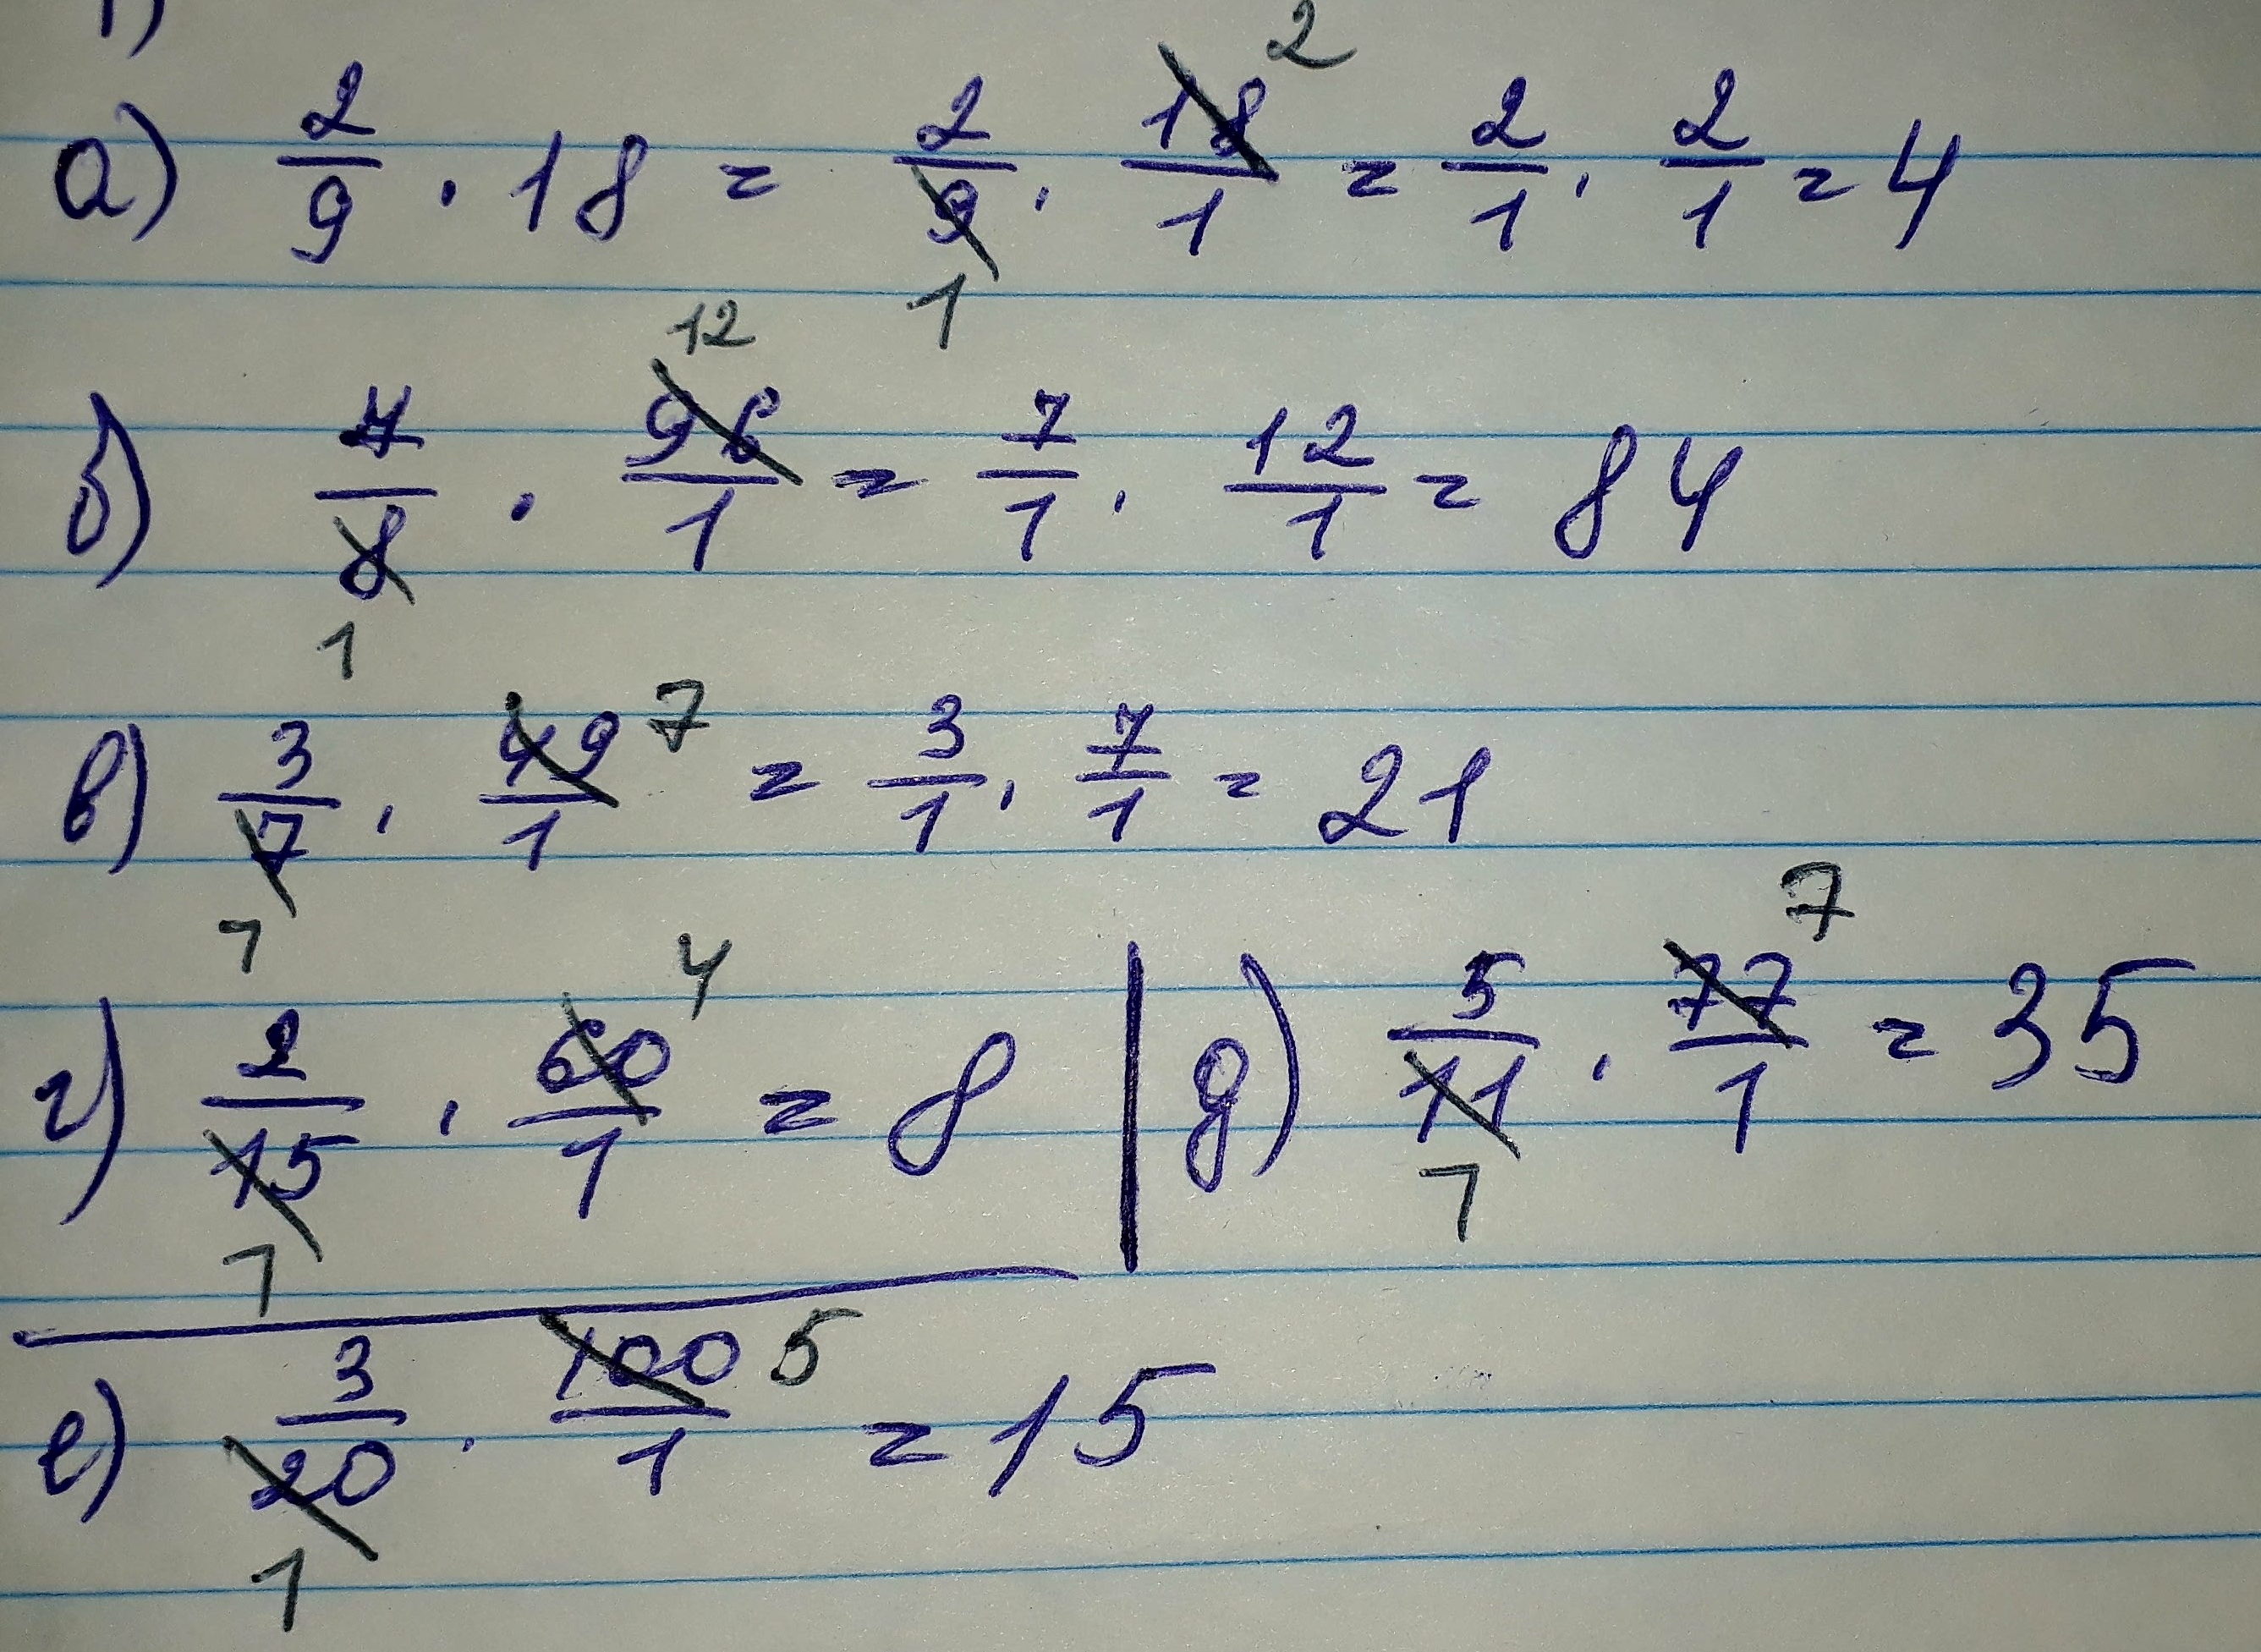 1)
а) 2/9 · 18 = 2/9 · 18/1 = 2/1 · 2/1 = 4
2
1
б) 7/8 · 96/1 = 7/1 · 12/1 = 84
12
1
в) 3/7 · 49/1 = 3/1 · 7/1 = 21
7
1
г) 2/15 · 60/1 = 8
4
1
д) 5/11 · 77/1 = 35
7
1
е) 3/20 · 100/1 = 15
5
1